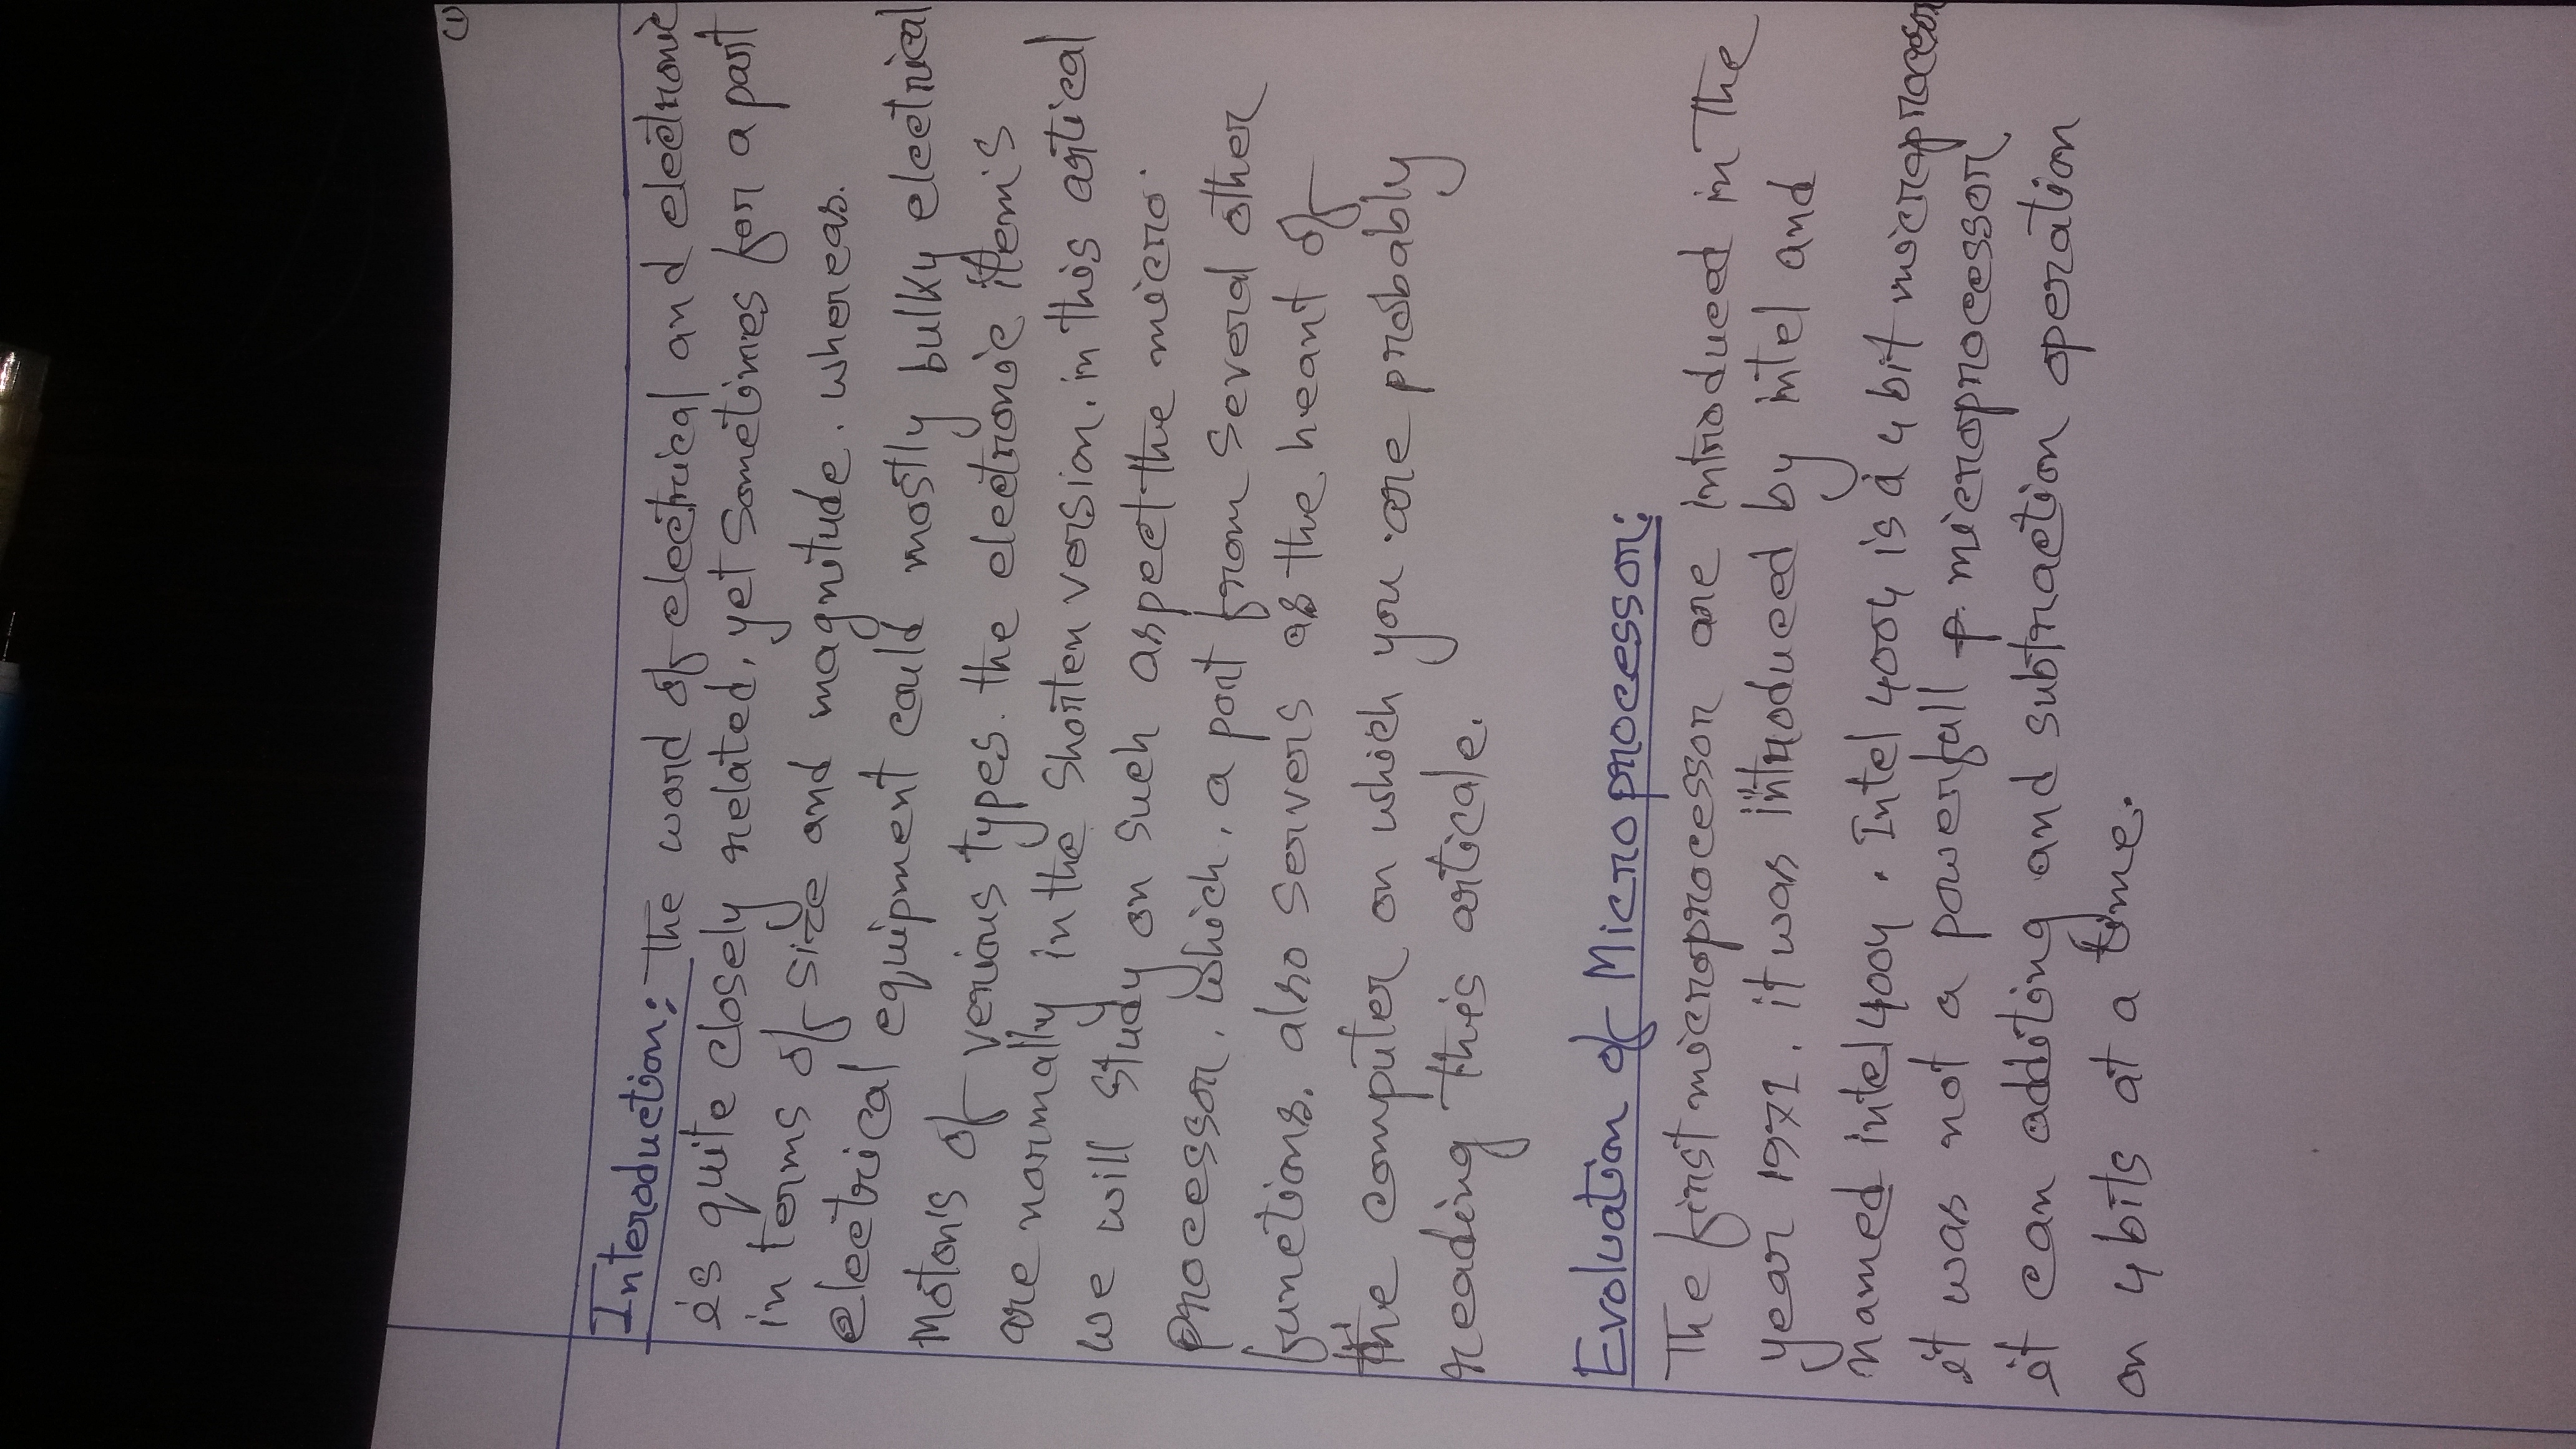 (1)
Interoduction: The word of electrical and electronic
is quite closely related, yet sometimes for a part
in terms of size and magnitude. whereas.
electrical equipment could mostly bulky electrical
Motor's of verious types. the electronic item's
are normally in the shorter version. in this artical
we will study on such aspect the micro
processor, which, a part from several other
functions. also servers as the heart of
the computer on which you are probably
reading this articale.
Evoluation of Microprocessor:
The first microprocessor are introduced in the
year 1971. it was introduced by intel and
named intel 4004. Intel 4004 is a 4 bit microprocesor
it was not a powerfull microprocessor
it can additing and subtraction operation
on 4 bits at a time.